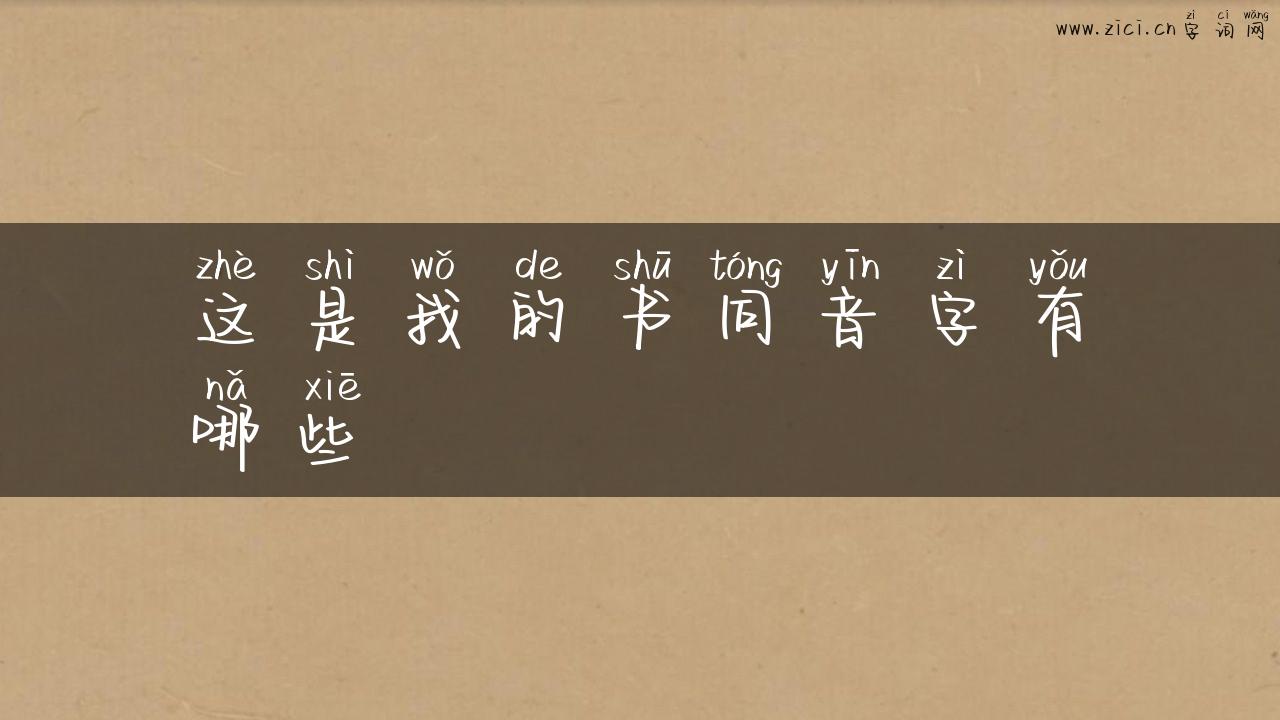 zì cí wǎng
www.zici.cn 字词网
zhè shì wǒ de shū tóng yīn zì yǒu
这是我的书同音字有
nǎ xiē
哪些